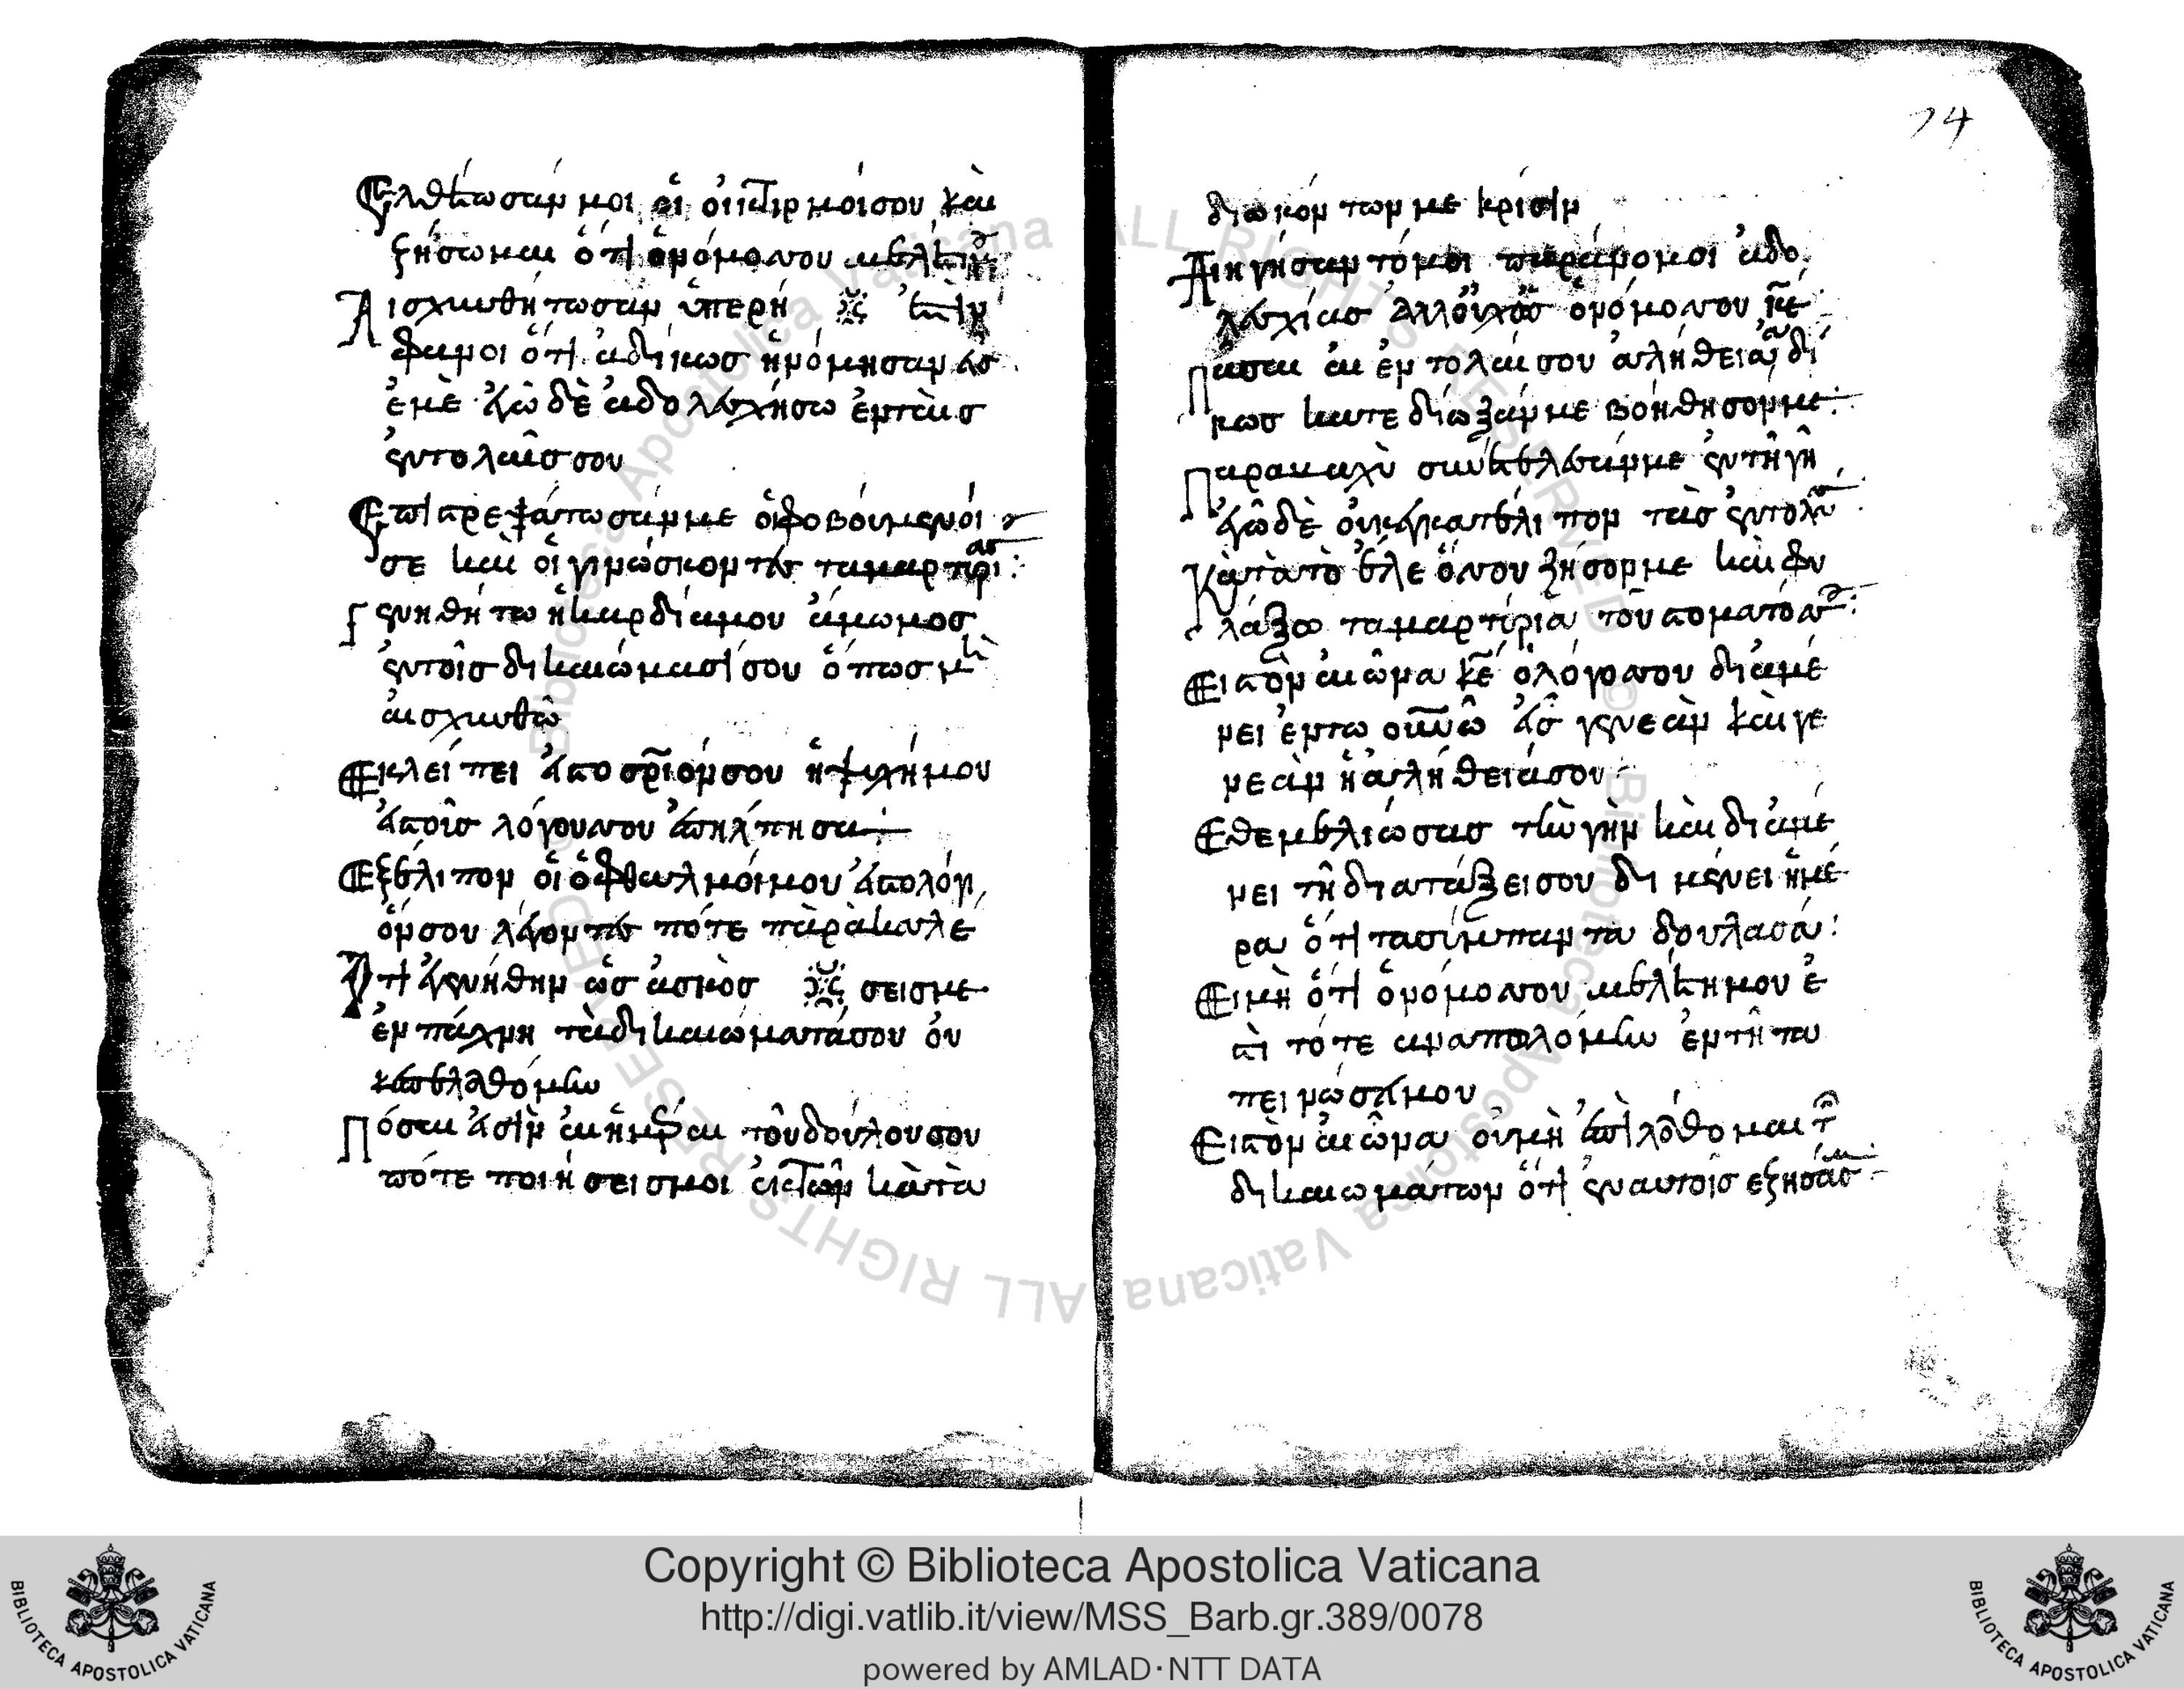 Ἐλθέτωσάν μοι οἱ οἰκτιρμοίσου καὶ
ζήσωμαι ὅτι ὁνόμοσσου μελέτημ
Αἰσχυνθήτωσαν ὑπερή
φανοι ὅτι ἀδίκως ἠνόμησαν εἰς
ἐμὲ ἐγὼ δὲ ἀδολεσχήσω ἐνταῖς
ἐντολαῖς σου
Ἐπιστρεψάτωσάν με οἱ φοβούμενοί
σε καὶ οἱ γινώσκοντες τα μαρτύρι
Γενηθήτω ἡ καρδία μου ἄμωμος
ἐντοῖς δικαιώμασί σου ὅπως μὴ
αἰσχυνθῶ
Ἐκλείπει εἰς το σριόν σου ἡ ψυχή μου
εἰς τοὺς λόγους σου ἐπήλπισα
Ἐξέλιπον οἱ ὀφθαλμοί μου εἰς το λόγι
όν σου λέγοντες πότε παρὰκαλέ
Ὅτι ἐγενήθην ὡς ἀσκὸς σεις με
ἐν πάχνη τὰ δικαιώματά σου οὐ
κ ἐπελαθόμην
Πόσαι εἰσὶν αἱ ἡμέραι τοῦ δούλου σου
πότε ποιήσεις μοι ἐκ τῶν κατὰ
74
διωκόντων με κρίσιν
Διηγήσαντό μοι παράνομοι ἀδο
λεσχίας ἀλλ' οὐχ ὡς ὁ νόμος σου κε
Πᾶσαι αἱ ἐντολαί σου ἀλήθεια ἀδί
κως κατεδίωξάν με βοήθησόν με
Παρακαχὺ συνετέλεσάν με ἐν τῆ γῆ
ἐγὼ δὲ οὐκ ἐγκατέλιπον τὰς ἐντολ
Κατὰ τὸ ἔλεός σου ζησόν με καὶ φυ
λάξω τα μαρτύρια τοῦ στοματόσ
Εἰς τὸν αἰῶνα κε ὁ λόγος σου διαμέ
νει ἐν τω οὐνῶ εἰς γενεὰν καὶ γε
νεὰν ἡ ἀλήθειά σου
Ἐθεμελίωσας τὴν γὴν καὶ διαμέ
νει τῆ διατάξει σου διαμένει ἡμέ
ρα ὅτι τα σύμπαντα δουλασά
Εἰ μὴ ὅτι ὁ νόμος σου μελέτη μου ἐ
στὶ τότε ἂν ἀπολόμην ἐν τῆ τα
πεινώσει μου
Εἰς τὸν αἰῶνα οὐ μὴ ἐπιλάθομαι τ
δικαιωμάτων ὅτι ἐν αυτοῖς εζησάς
Copyright © Biblioteca Apostolica Vaticana
http://digi.vatlib.it/view/MSS_Barb.gr.389/0078
powered by AMLAD·NTT DATA
BIBLIOTECA APOSTOLICA VATICANA
BIBLIOTECA APOSTOLICA VATICANA